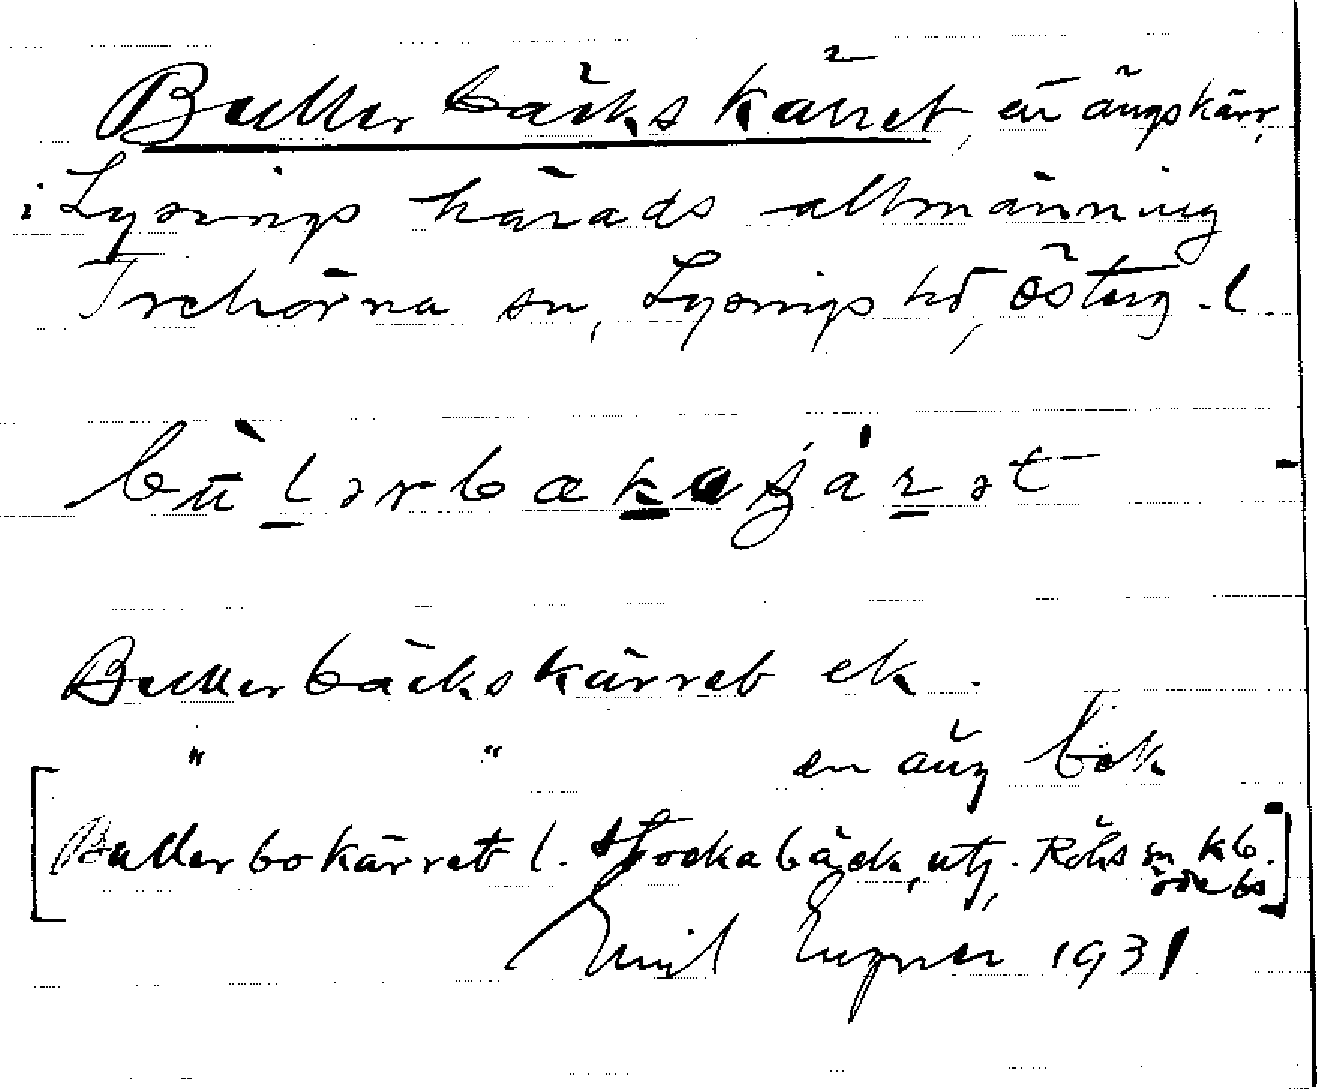 Bullerbäckskärret, en ängskärr,
i Lysings härads allmänning
Trehörna sn, Lysings hd, Österg. l.
bùlərbækakjárət
Bullerbäckskärret ek.
" " en äng bek
[Bullerbokärret l. Stockabäck, utj.
Emil 1931